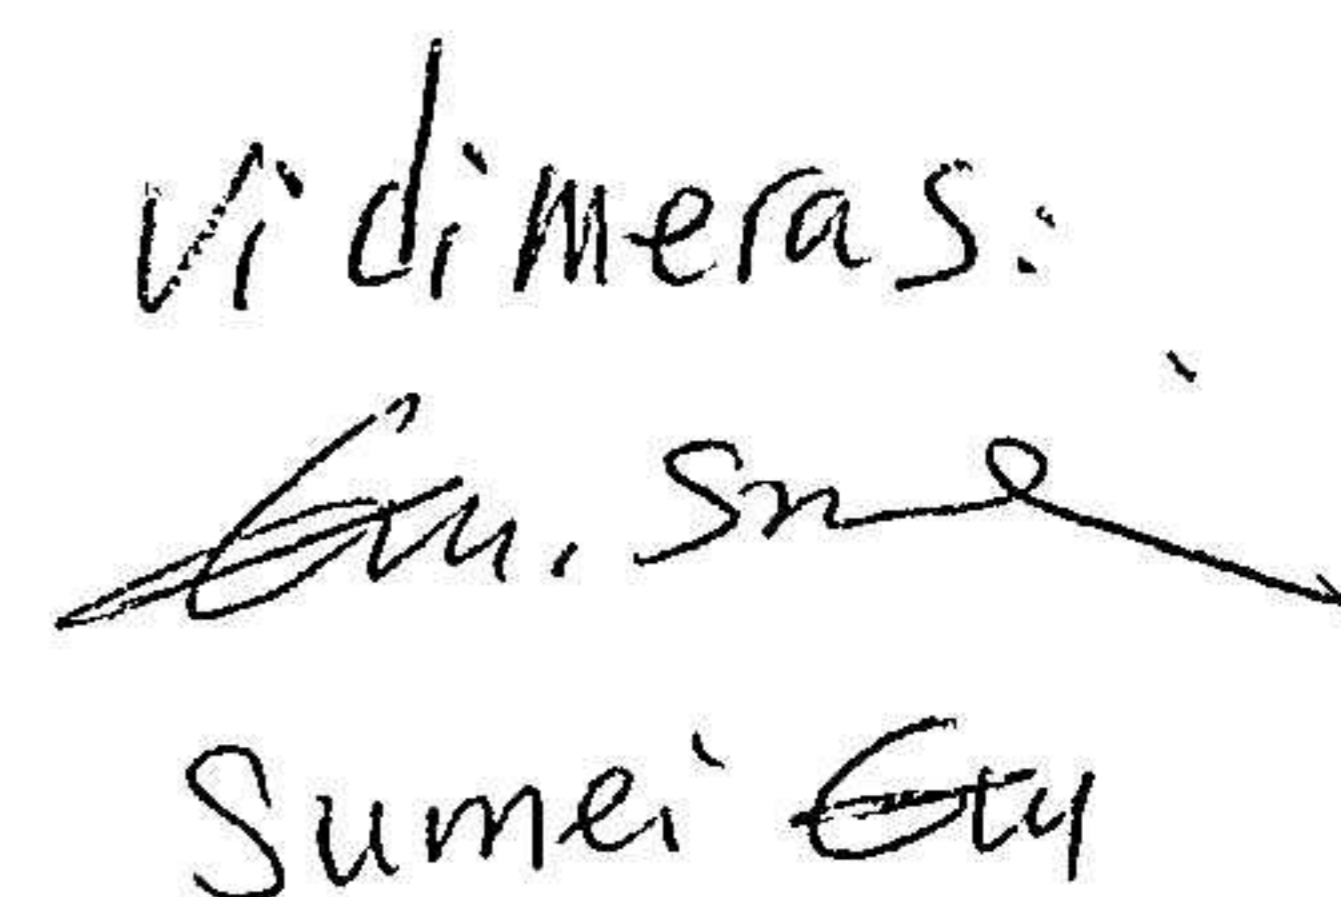 Vidimeras:
Gu. Sumei
Sumei Gu